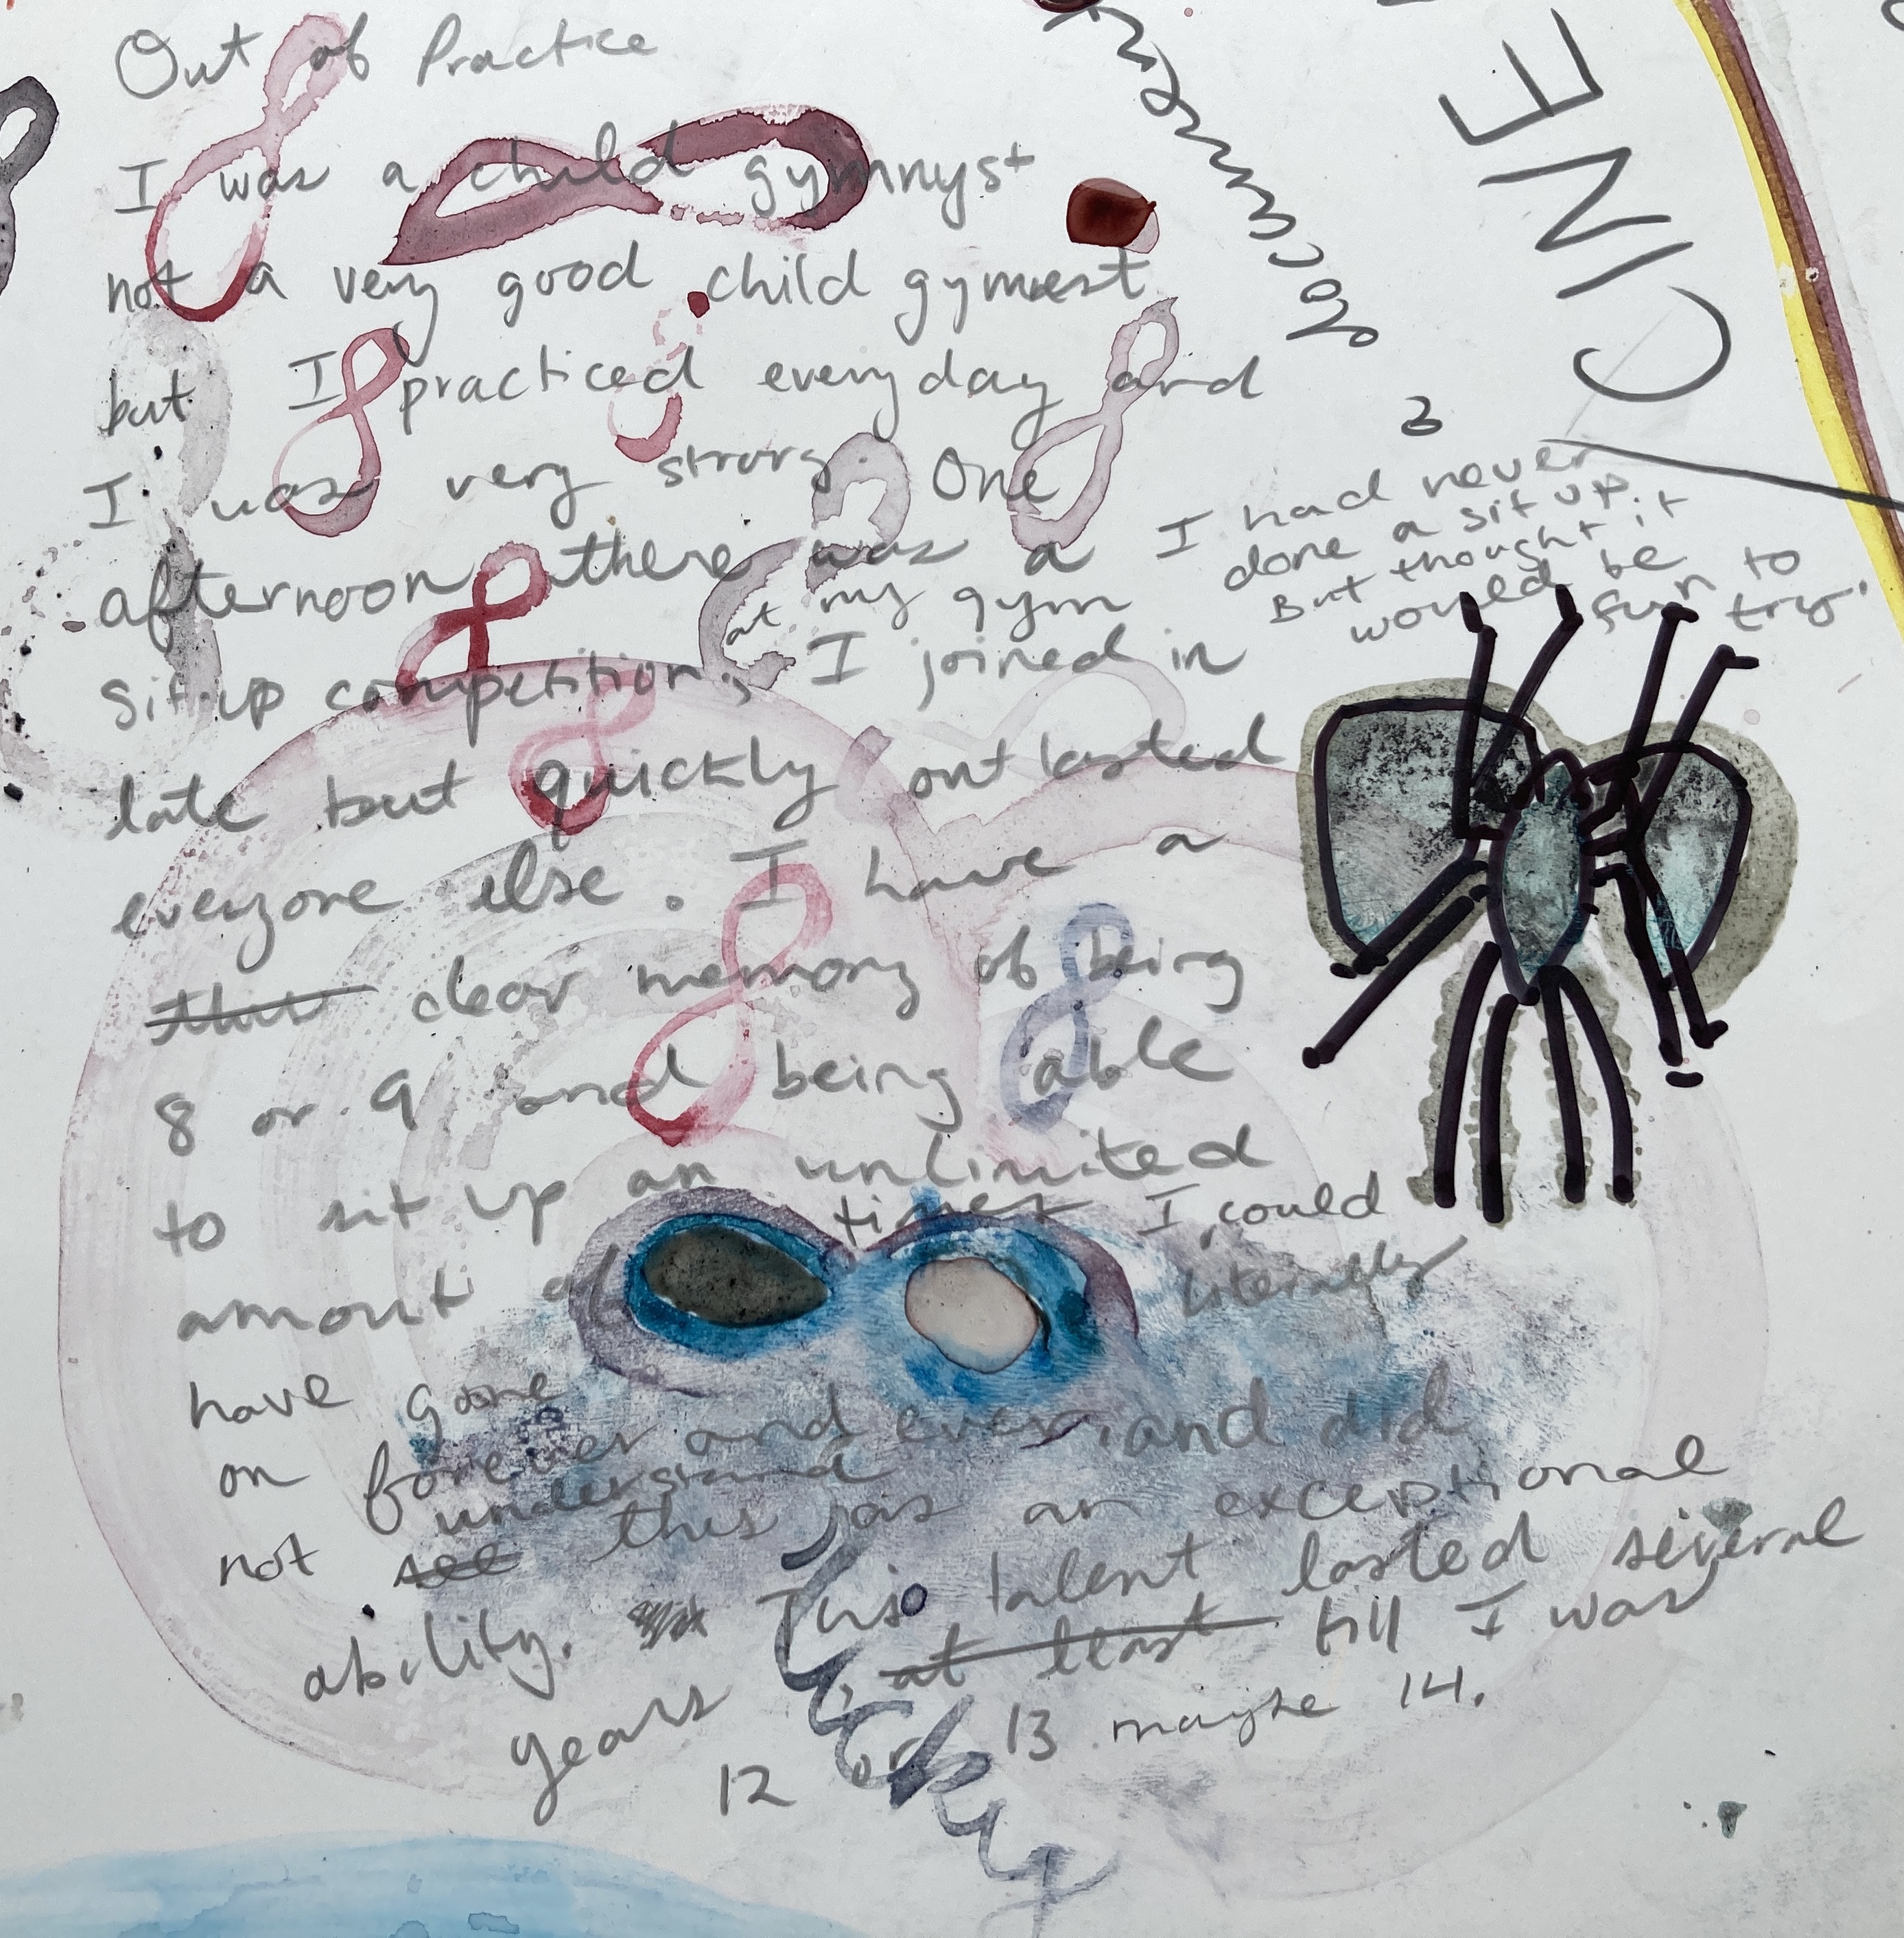 Out of Practice
I was a child gymnyst
not a very good child gymnest
but I practiced everyday and
I was very strong. One
afternoon there was a
at my gym
sit-up competition, I joined in
I had never
done a sit up.
But thought it
would be
fun to
try.
late but quickly outlasted
everyone else. I have a
this clear memory of being
8 or 9 and being able
to sit up an unlimited
amount of times I could
literally
have gone
on forever and ever, and did
understand
not see this as an exceptional
ability. This talent lasted several
years, at least till I was
12 or 13 maybe 14.
CINE